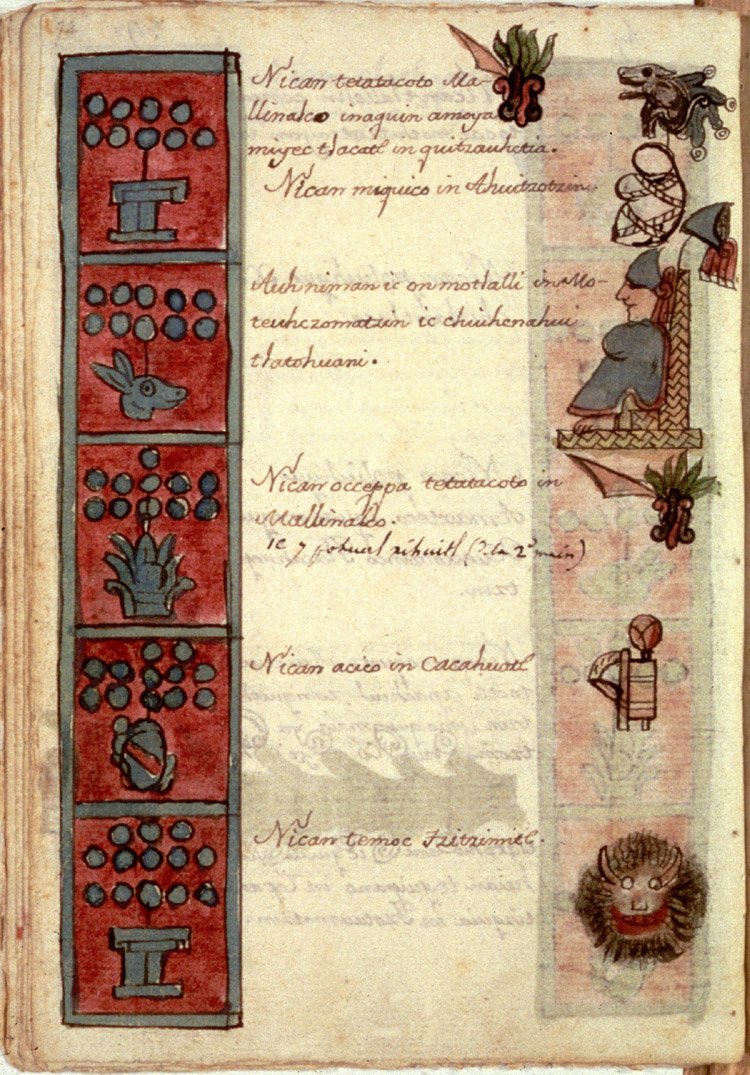 Nican tetatacoto Ma-
llinalco inaquin amoya
miyec tlacatl in quitzauhctia.
Nican miquico in Ahuitzotzin.
Auh niman ic on motlalli in Mo-
teuhczomatzin ic chiuhcnahui
tlatohuani.
Nican occeppa tetatacoto in
Mallinalco.
ic 7 pohual xihuitl (de la 2ª main)
Nican acico in Cacahuatl
Nican temoc Tzitzimitl.